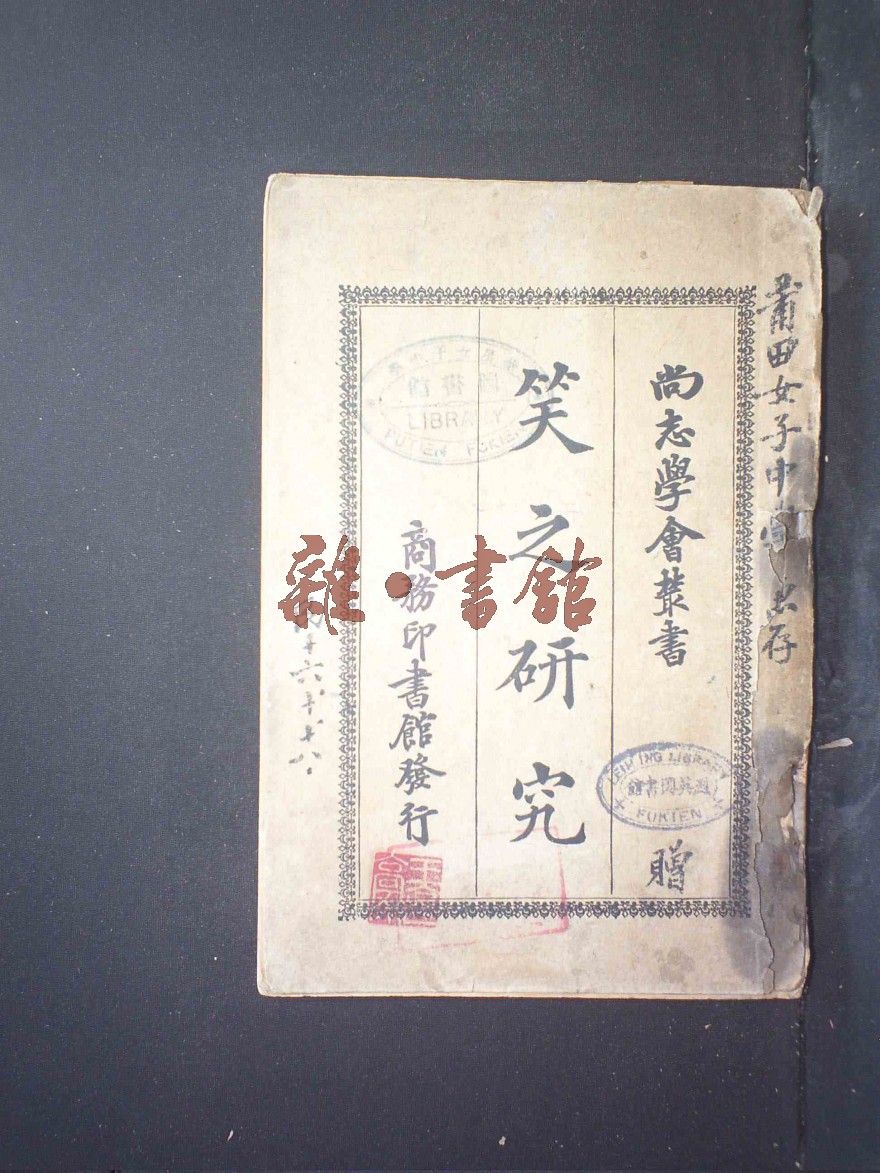 莆田女子中學
存
尚志學會叢書
贈
笑之研究
商務印書館發行
圖書館
LIBRARY
PUTIEN FUKIEN
LIBRARY
英圖書館
FUKIEN
雜·書館
六十八